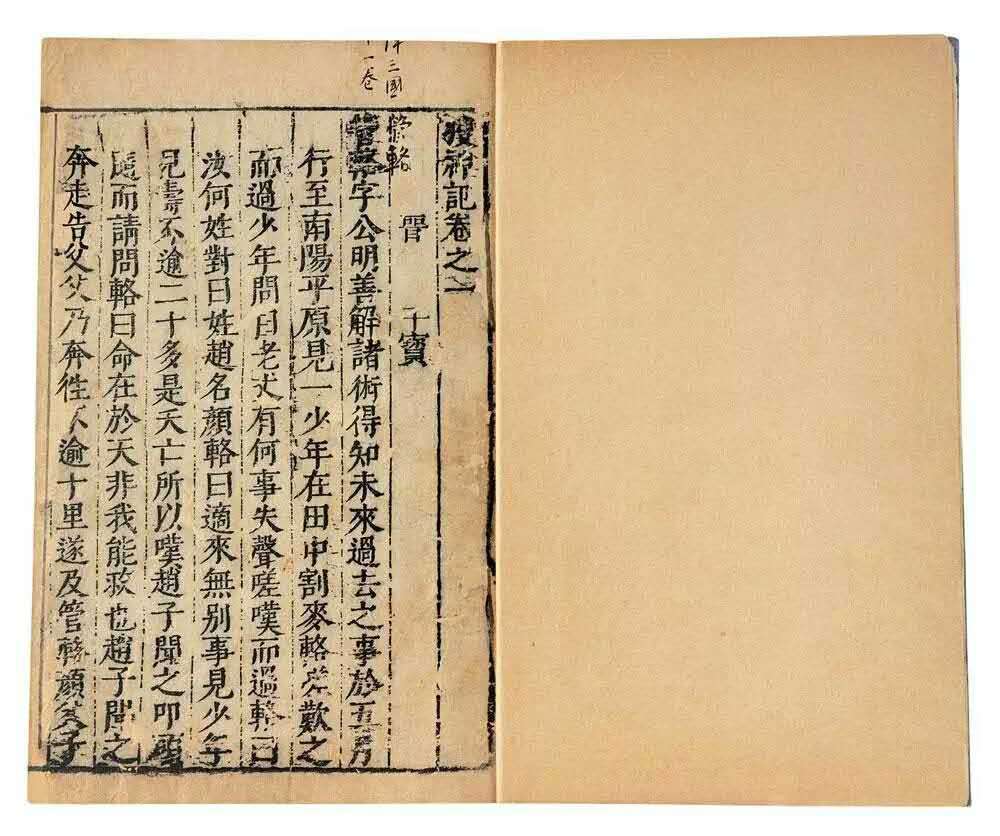 三國
一卷
搜神記卷之一
管輅
晉 干寶
管輅字公明善解諸術得知未來過去之事於五月
行至南陽平原見一少年在田中割麥輅嗟歎之
而過少年問曰老丈有何事失聲嗟嘆而過輅曰
汝何姓對曰姓趙名顏輅曰適來無別事見少年
兄壽不逾二十多是夭亡所以嘆趙子聞之叩頭
隨而請問輅曰命在於天非我能救也趙子聞之
奔走告父父乃奔徃不逾十里遂及管輅顏父子